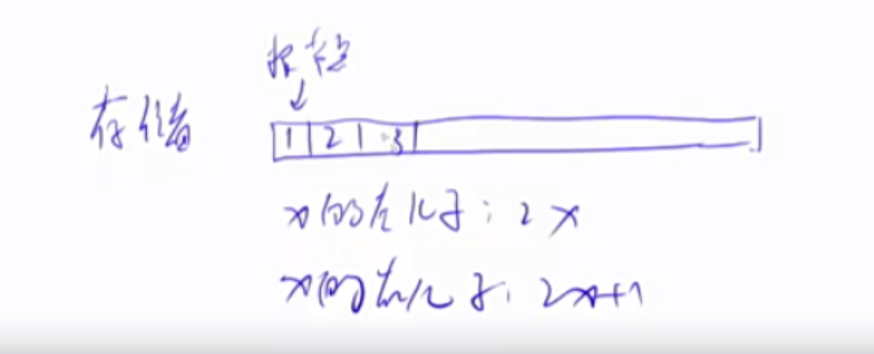 根结点
存储
1 2 3
x的左儿子：2x
x的右儿子：2x+1